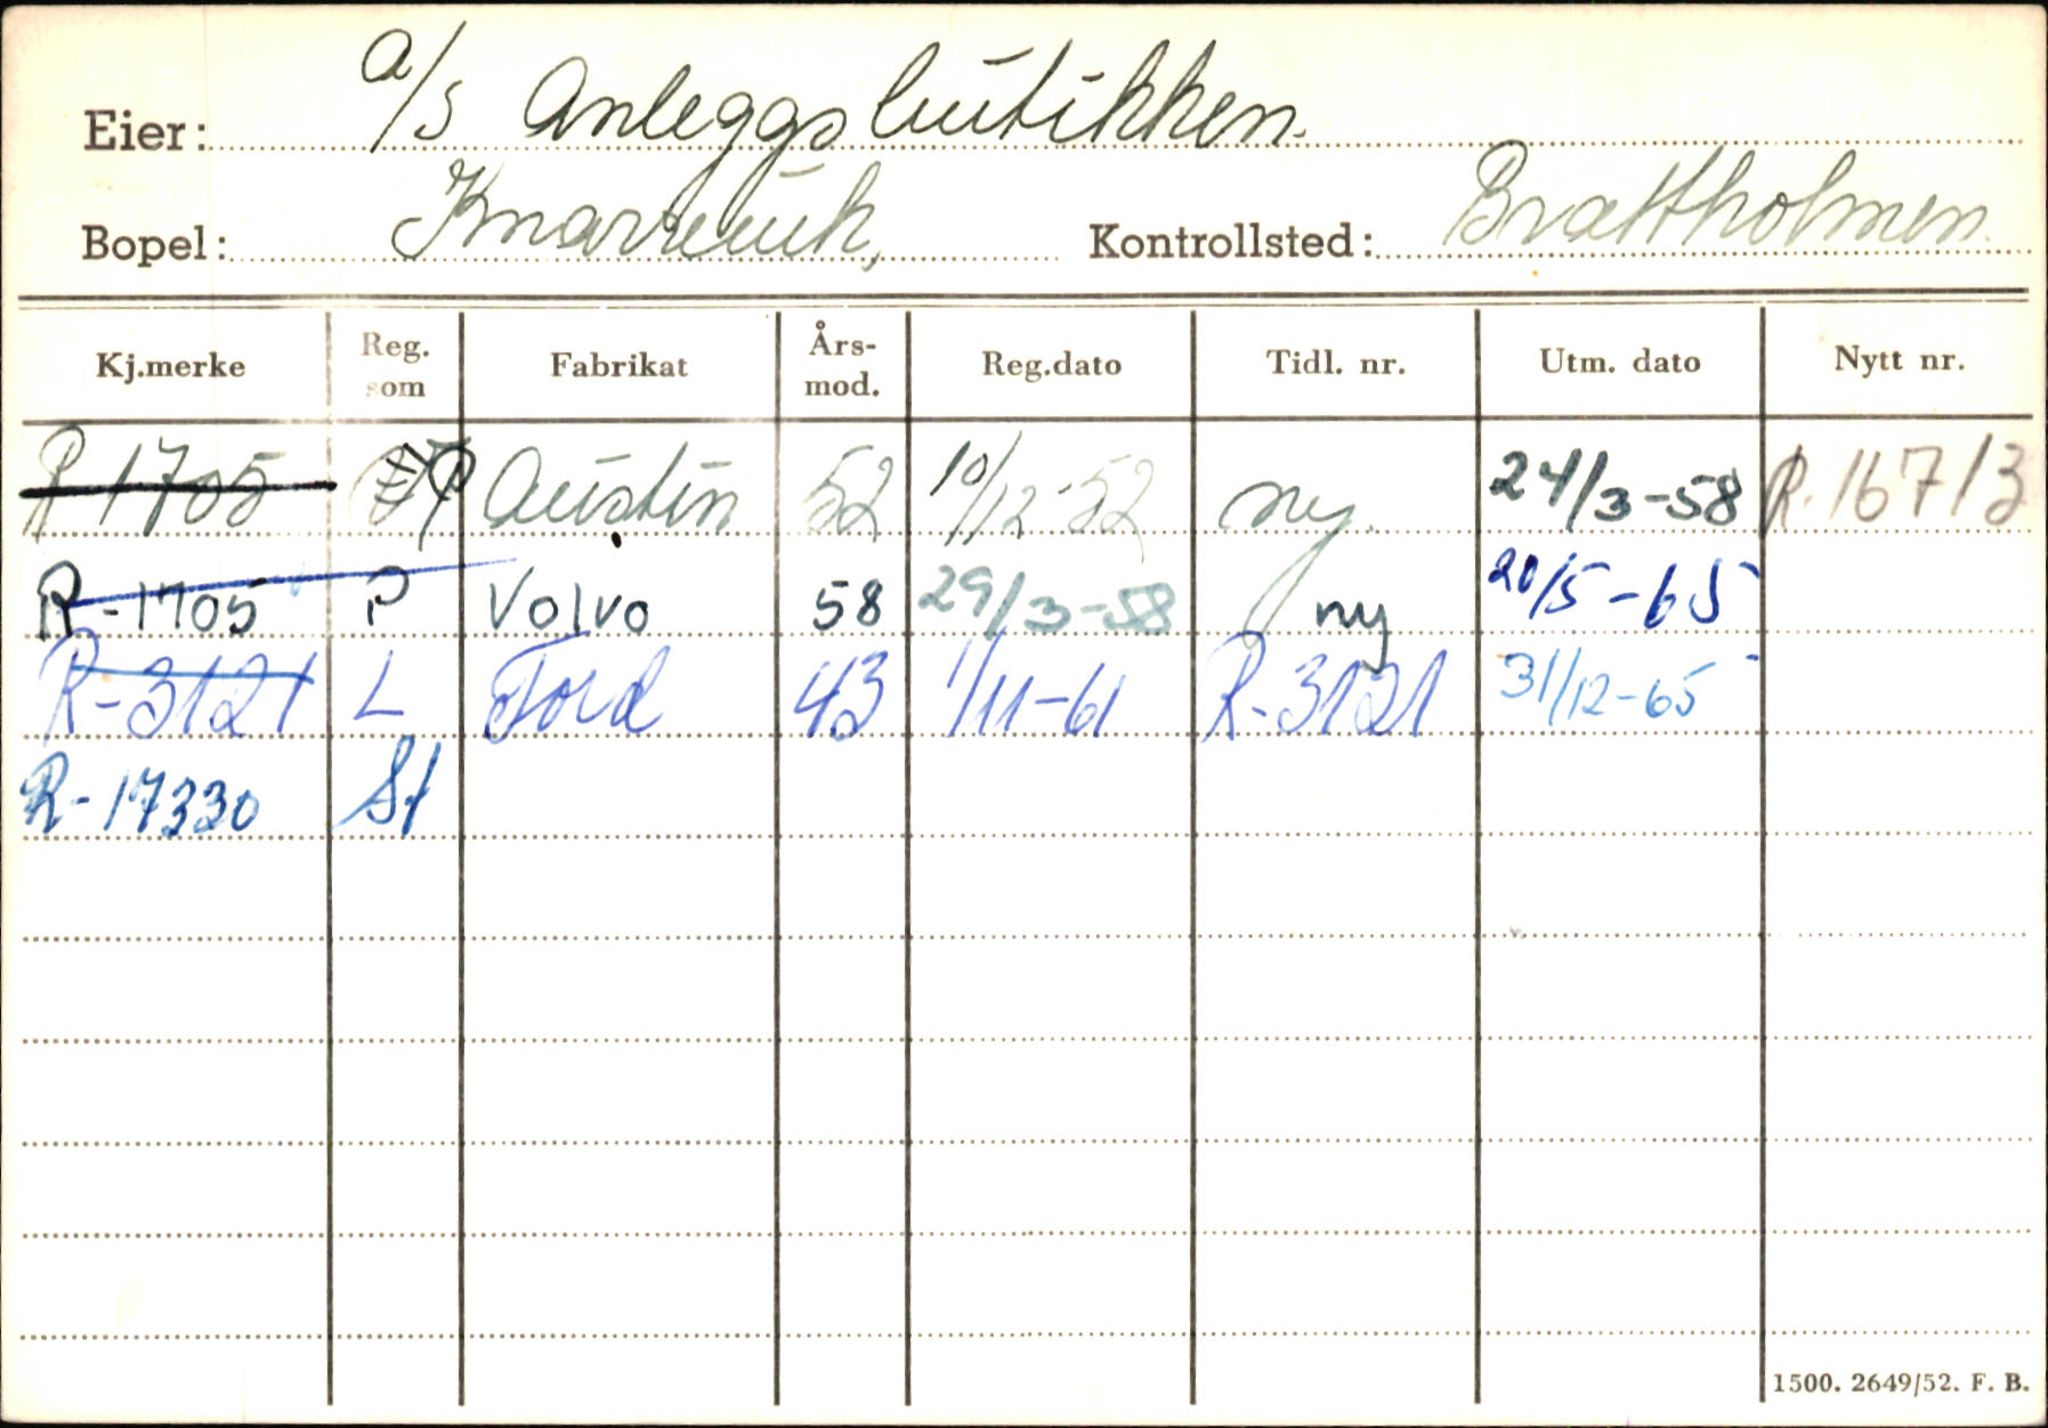 Eier: A/S Anleggsbutikken.
Bopel: Knarrevik, Kontrollsted: Brattholmen
Kj.merke Reg. som Fabrikat Års-mod. Reg.dato Tidl. nr. Utm. dato Nytt nr.
R 1705 P Austin 52 10/12-52 ny. 24/3-58 R. 16713
R-1705 P Volvo 58 29/3-58 ny 20/5-65
R-3121 L Ford 43 1/11-61 R-3121 31/12-65
R-17330 St
1500. 2649/52. F. B.